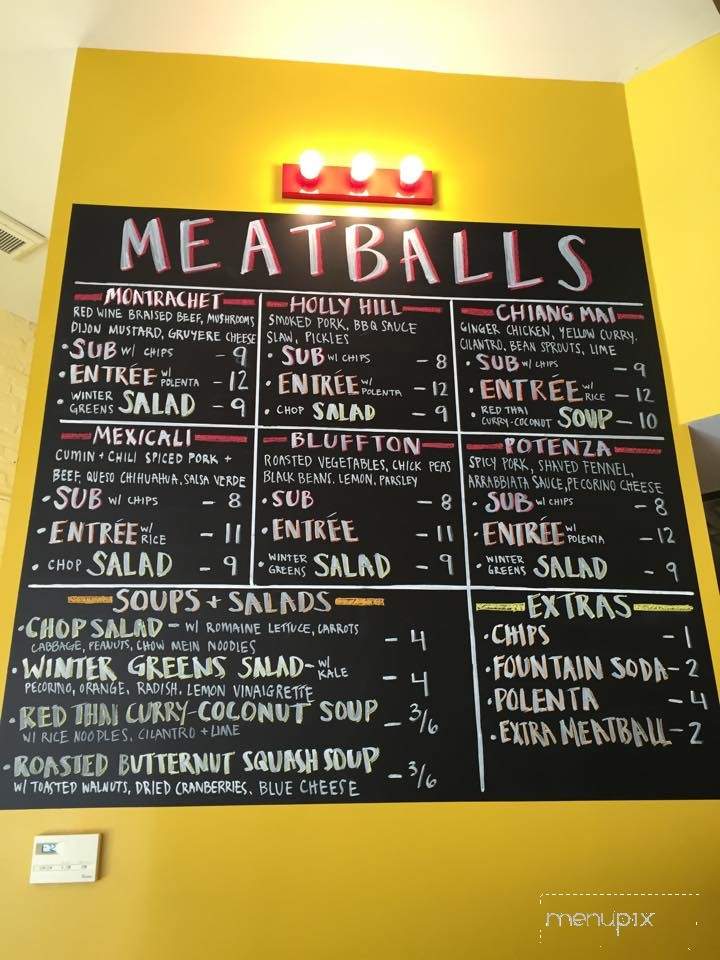 MEATBALLS
MONTRACHET
RED WINE BRAISED BEEF, MUSHROOMS
DIJON MUSTARD, GRUYERE CHEESE
• SUB W/ CHIPS - 9
• ENTRÉE W/ POLENTA - 12
• WINTER GREENS SALAD - 9
HOLLY HILL
SMOKED PORK, BBQ SAUCE
SLAW, PICKLES
• SUB W/ CHIPS - 8
• ENTRÉE W/ POLENTA - 12
• CHOP SALAD - 9
CHIANG MAI
GINGER CHICKEN, YELLOW CURRY,
CILANTRO, BEAN SPROUTS, LIME
• SUB W/ CHIPS - 9
• ENTRÉE W/ RICE - 12
• RED THAI CURRY-COCONUT SOUP - 10
MEXICALI
CUMIN + CHILI SPICED PORK +
BEEF, QUESO CHIHUAHUA, SALSA VERDE
• SUB W/ CHIPS - 8
• ENTRÉE W/ RICE - 11
• CHOP SALAD - 9
BLUFFTON
ROASTED VEGETABLES, CHICK PEAS
BLACK BEANS, LEMON, PARSLEY
• SUB - 8
• ENTRÉE - 11
• WINTER GREENS SALAD - 9
POTENZA
SPICY PORK, SHAVED FENNEL,
ARRABBIATA SAUCE, PECORINO CHEESE
• SUB W/ CHIPS - 8
• ENTRÉE W/ POLENTA - 12
• WINTER GREENS SALAD - 9
SOUPS + SALADS
• CHOP SALAD - W/ ROMAINE LETTUCE, CARROTS
CABBAGE, PEANUTS, CHOW MEIN NOODLES - 4
• WINTER GREENS SALAD - W/ KALE
PECORINO, ORANGE, RADISH, LEMON VINAIGRETTE - 4
• RED THAI CURRY-COCONUT SOUP - 3/6
W/ RICE NOODLES, CILANTRO + LIME
• ROASTED BUTTERNUT SQUASH SOUP - 3/6
W/ TOASTED WALNUTS, DRIED CRANBERRIES, BLUE CHEESE
EXTRAS
• CHIPS - 1
• FOUNTAIN SODA - 2
• POLENTA - 4
• EXTRA MEATBALL - 2
menupix